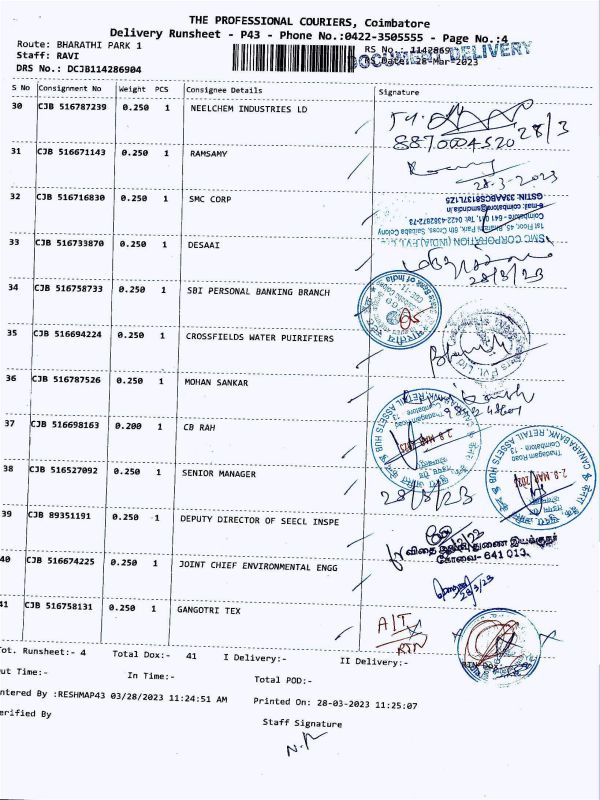 THE PROFESSIONAL COURIERS, Coimbatore
Delivery Runsheet - P43 - Phone No.:0422-3505555 - Page No.:4
Route: BHARATHI PARK 1
RS No.: 1142869
DOCUMENT DELIVERY
Staff: RAVI
RS Date: 28-Mar-2023
DRS No.: DCJB114286904
S No Consignment No Weight PCS Consignee Details Signature
30 CJB 516787239 0.250 1 NEELCHEM INDUSTRIES LD
8870004520 28/3
31 CJB 516671143 0.250 1 RAMSAMY
28-3-2023
32 CJB 516716830 0.250 1 SMC CORP
SMC CORPORATION (INDIA) PVT. LTD.
1st Floor, 45, Bharathi Park, 6th Cross, Saibaba Colony
Coimbatore - 641 011. Tel: 0422-4382872-73
e-mail: coimbatore@smcindia.in
GSTIN: 33AABCS8137L1Z5
33 CJB 516733870 0.250 1 DESAAI
28/3/23
34 CJB 516758733 0.250 1 SBI PERSONAL BANKING BRANCH
35 CJB 516694224 0.250 1 CROSSFIELDS WATER PUIRIFIERS
36 CJB 516787526 0.250 1 MOHAN SANKAR
37 CJB 516698163 0.200 1 CB RAH
CANARA BANK, RETAIL ASSETS HUB
Thadagam Road
Coimbatore
28 MAR 2023
38 CJB 516527092 0.250 1 SENIOR MANAGER
28/3/23
CANARA BANK, RETAIL ASSETS HUB
Thadagam Road
Coimbatore - 13
28 MAR 2023
39 CJB 89351191 0.250 1 DEPUTY DIRECTOR OF SEECL INSPE
விதை துணை இயக்குநர்
கோவை- 641 013.
40 CJB 516674225 0.250 1 JOINT CHIEF ENVIRONMENTAL ENGG
28/3/23
41 CJB 516758131 0.250 1 GANGOTRI TEX
A/T
RTN
Tot. Runsheet:- 4 Total Dox:- 41 I Delivery:- II Delivery:-
RTN Dox:-
Out Time:- In Time:- Total POD:-
Entered By :RESHMAP43 03/28/2023 11:24:51 AM Printed On: 28-03-2023 11:25:07
Verified By
Staff Signature